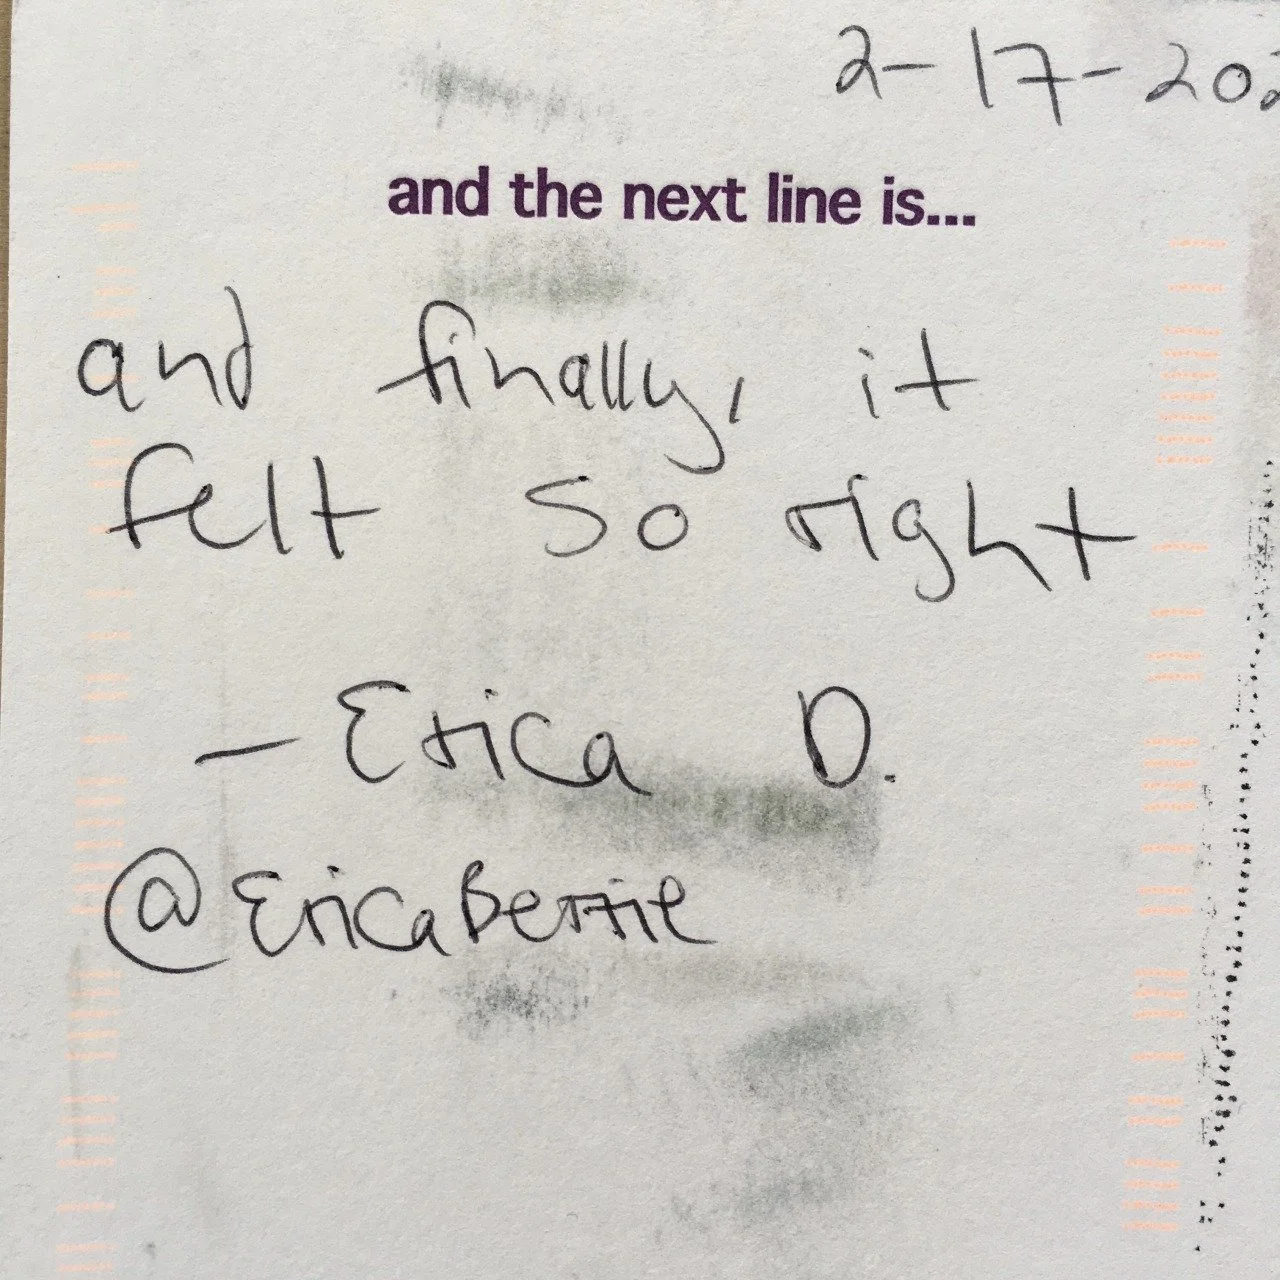 2-17-202
and the next line is...
and finally, it
felt so right
- Erica D.
@EricaBertie